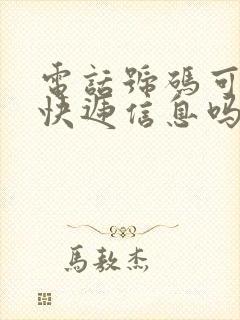 電話號碼可
快递信息吗
馬敖杰